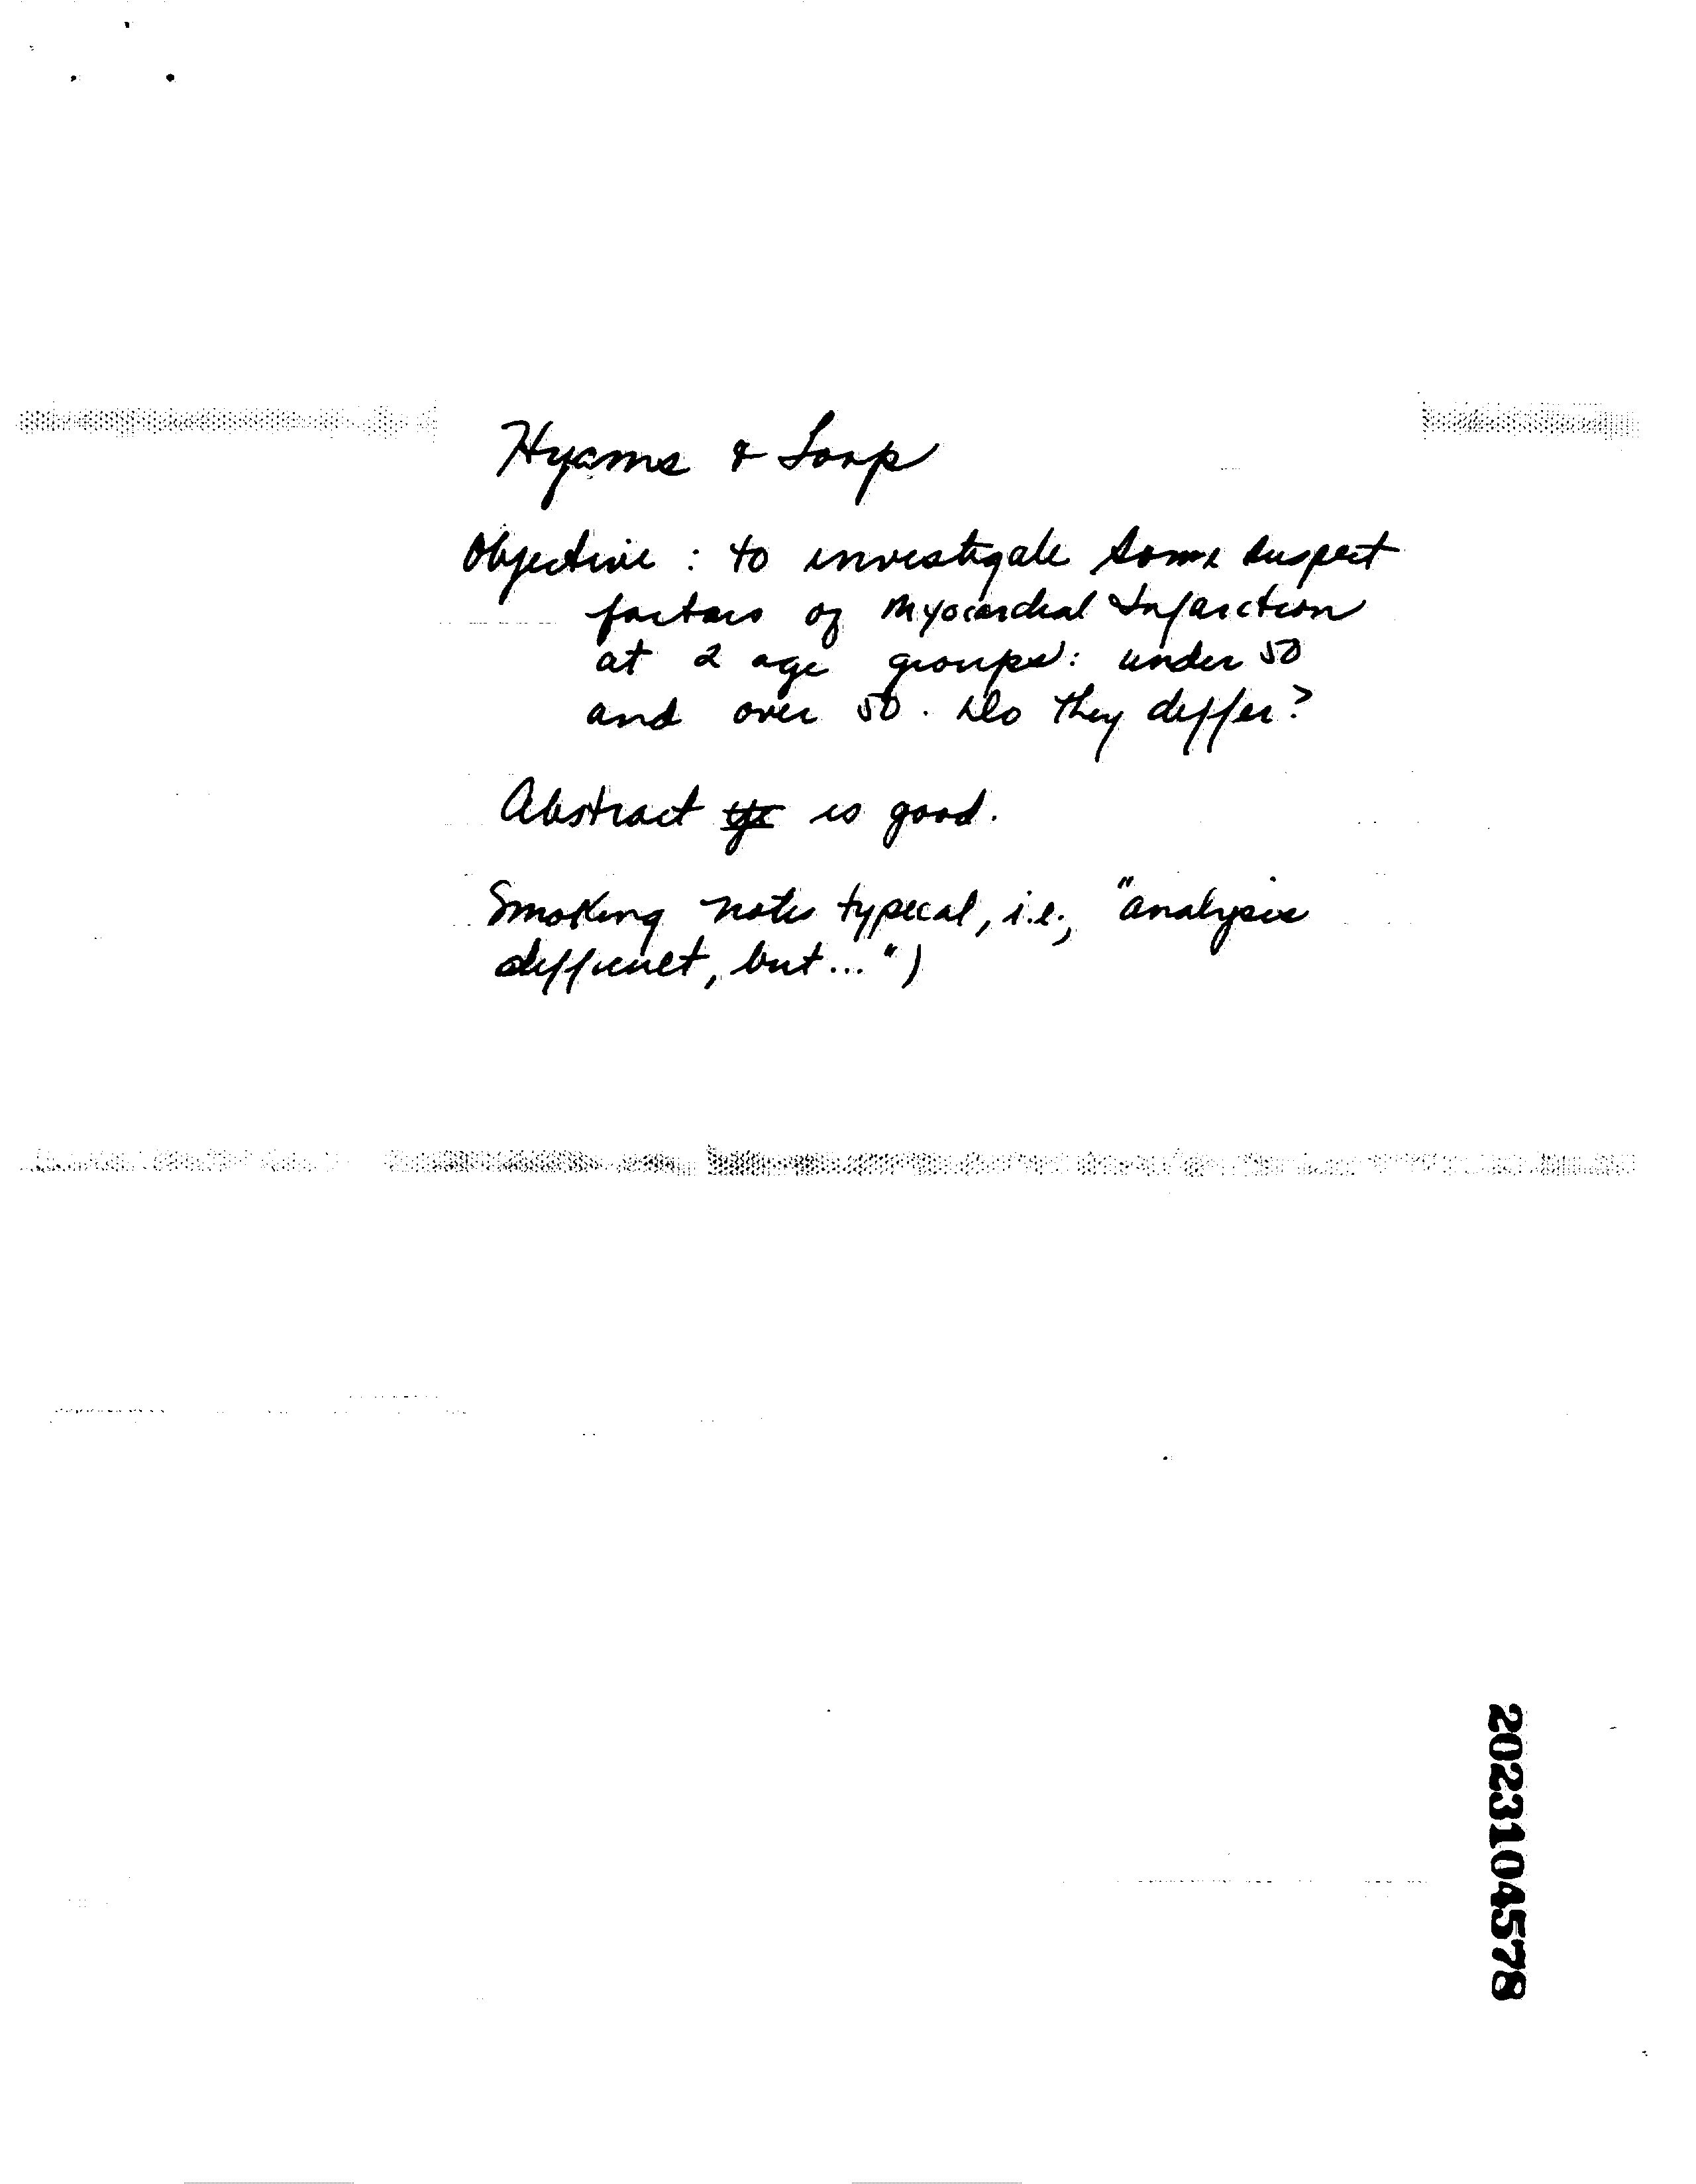 Hyams & Loop
Objective : to investigate some suspect
factors of Myocardial Infarction
at 2 age groups: under 50
and over 50. Do they differ?
Abstract is good.
Smoking notes typical, i.e., "analysis
difficult, but..." )
2023104578